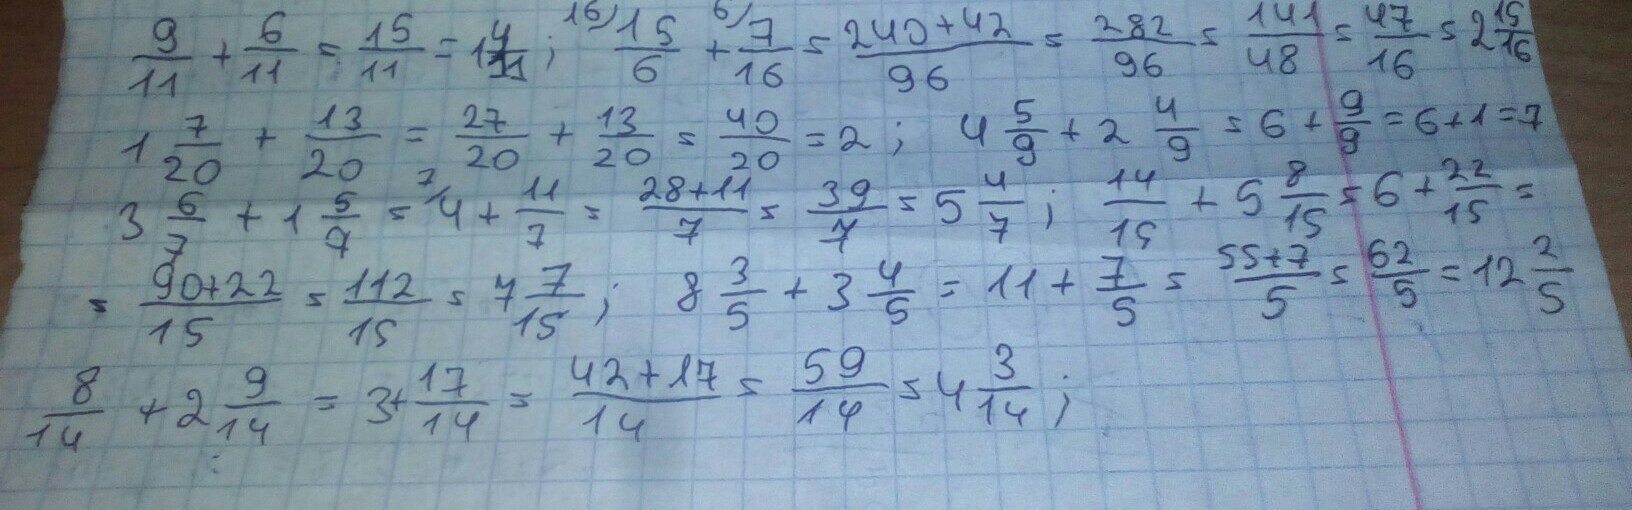 9/11 + 6/11 = 15/11 = 1 4/11; 16/ 15/6 + 6/ 7/16 = 240+42/96 = 282/96 = 141/48 = 47/16 = 2 15/16
1 7/20 + 13/20 = 27/20 + 13/20 = 40/20 = 2; 4 5/9 + 2 4/9 = 6 + 9/9 = 6+1=7
3 6/7 + 1 5/7 = 7/ 4 + 11/7 = 28+11/7 = 39/7 = 5 4/7; 14/15 + 5 8/15 = 6 + 22/15 =
= 90+22/15 = 112/15 = 7 7/15; 8 3/5 + 3 4/5 = 11 + 7/5 = 55+7/5 = 62/5 = 12 2/5
8/14 + 2 9/14 = 3+ 17/14 = 42+17/14 = 59/14 = 4 3/14;